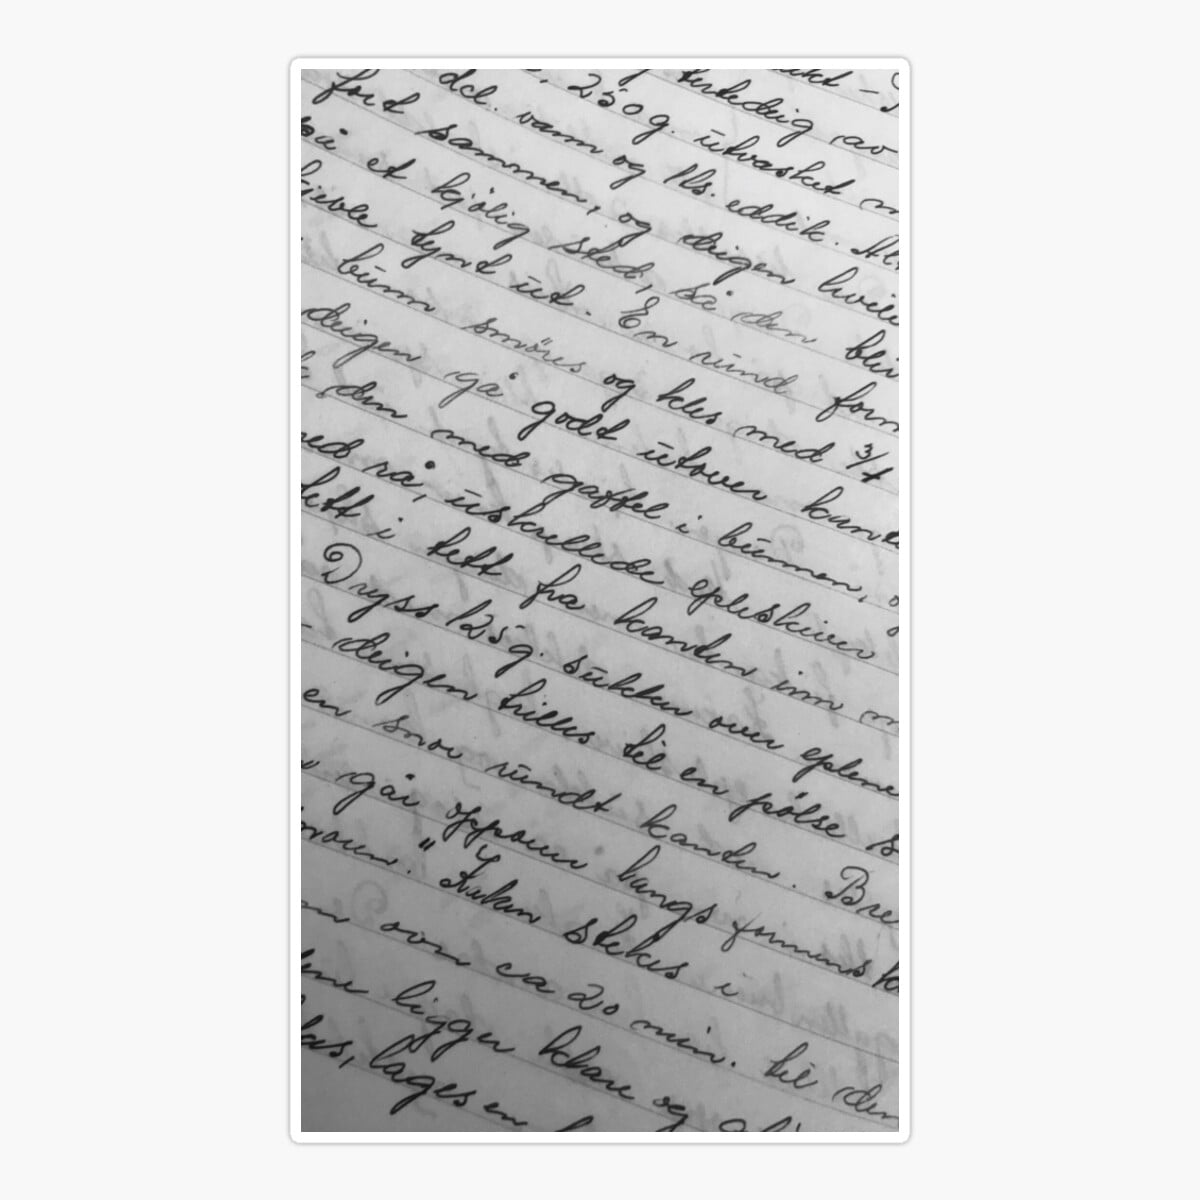 ukt -
tertedeig av
250 g. utvasket m
dcl. vann og 1 ls. eddik. Al
fort sammen, og deigen hvile
på et kjølig sted, så den bliv
kjevle tynt ut. En rund form
bunn smøres og kles med 3/4
deigen gå godt utover kante
den med gaffel i bunnen, o
ed rå, uskrellede epleskiver
tett i tett fra kanten inn m
Dryss 125 g. sukker over eplene
- deigen trilles til en pølse s
en snor rundt kanten. Bre
går oppover langs formens k
noren." Kaken stekes i
ovn ca 20 min. til den
ene ligger klare og
kas, lages en